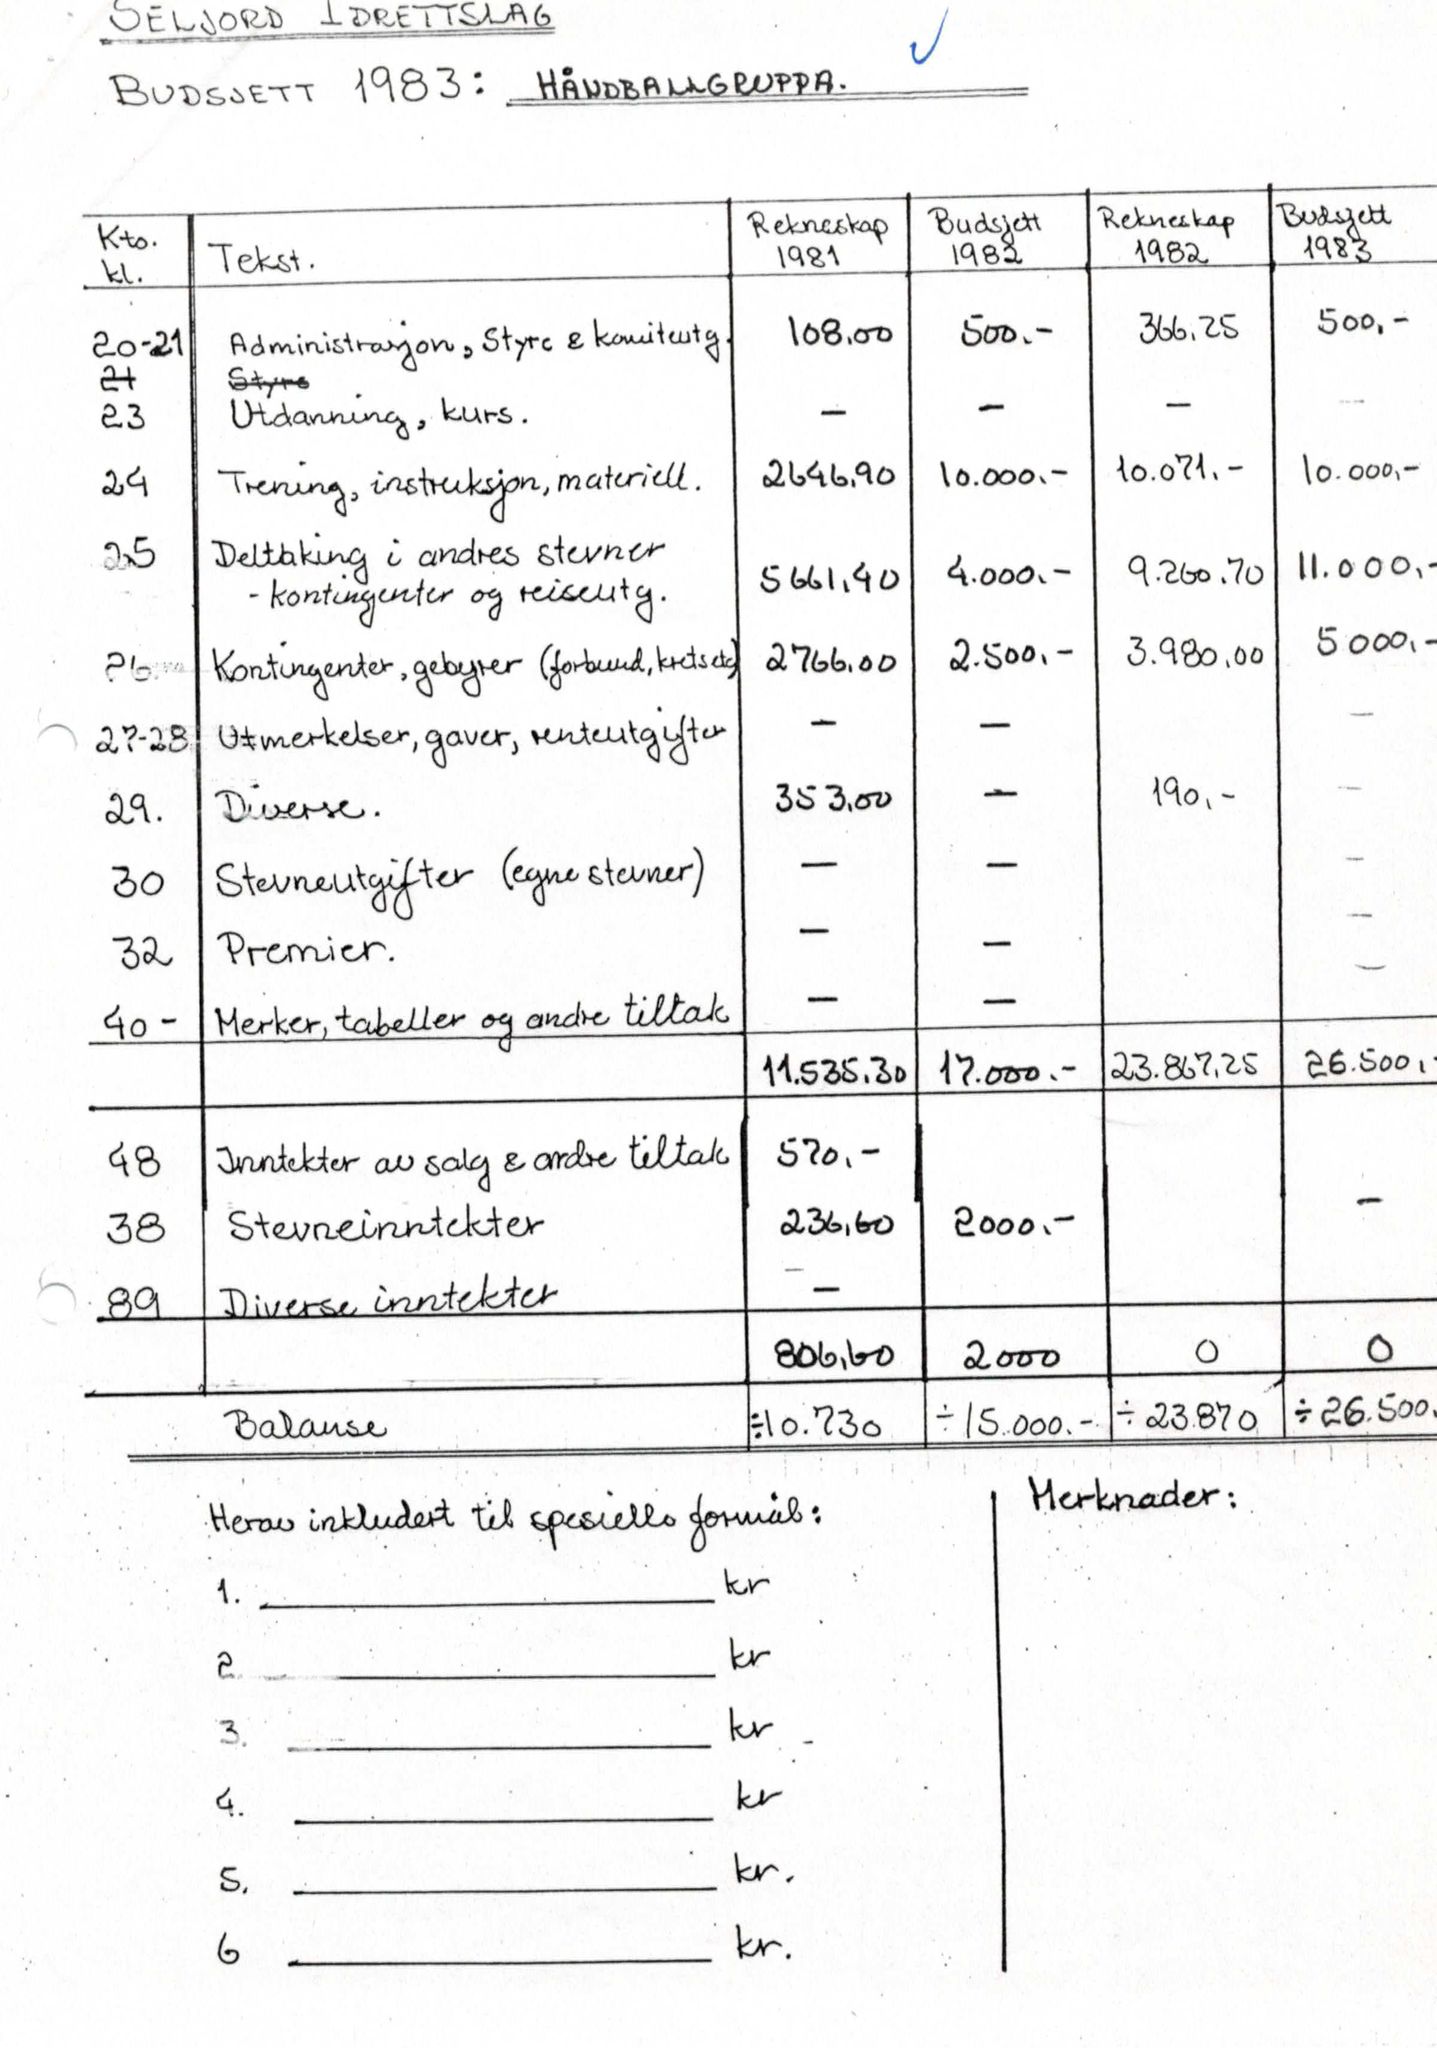 SELJORD IDRETTSLAG
BUDSJETT 1983: HÅNDBALLGRUPPA.
Kto. kl. Tekst. Rekneskap 1981 Budsjett 1982 Rekneskap 1982 Budsjett 1983
20-21 Administrasjon, Styre & komiteutg. 108,00 500.- 366,25 500,-
21 Styre
23 Utdanning, kurs. — — — —
24 Trening, instruksjon, materiell. 2646,90 10.000.- 10.071.- 10.000,-
25 Deltaking i andres stevner
- kontingenter og reiseutg. 5661,40 4.000.- 9.260.70 11.000,-
26 Kontingenter, gebyrer (forbund, krets etc) 2766,00 2.500.- 3.980,00 5000,-
27-28 Utmerkelser, gaver, renteutgifter — — —
29. Diverse. 353,00 — 190,- —
30 Stevneutgifter (egne stevner) — — —
32 Premier. — — —
40- Merker, tabeller og andre tiltak — — —
11.535,30 17.000.- 23.867,25 26.500,-
48 Inntekter av salg & andre tiltak 570.-
38 Stevneinntekter 236,60 2000.- —
89 Diverse inntekter —
806,60 2000 0 0
Balanse ÷10.730 ÷15.000.- ÷23.870 ÷26.500.
Herav inkludert til spesielle formål: Merknader:
1. kr
2. kr
3. kr
4. kr
5. kr.
6 kr.